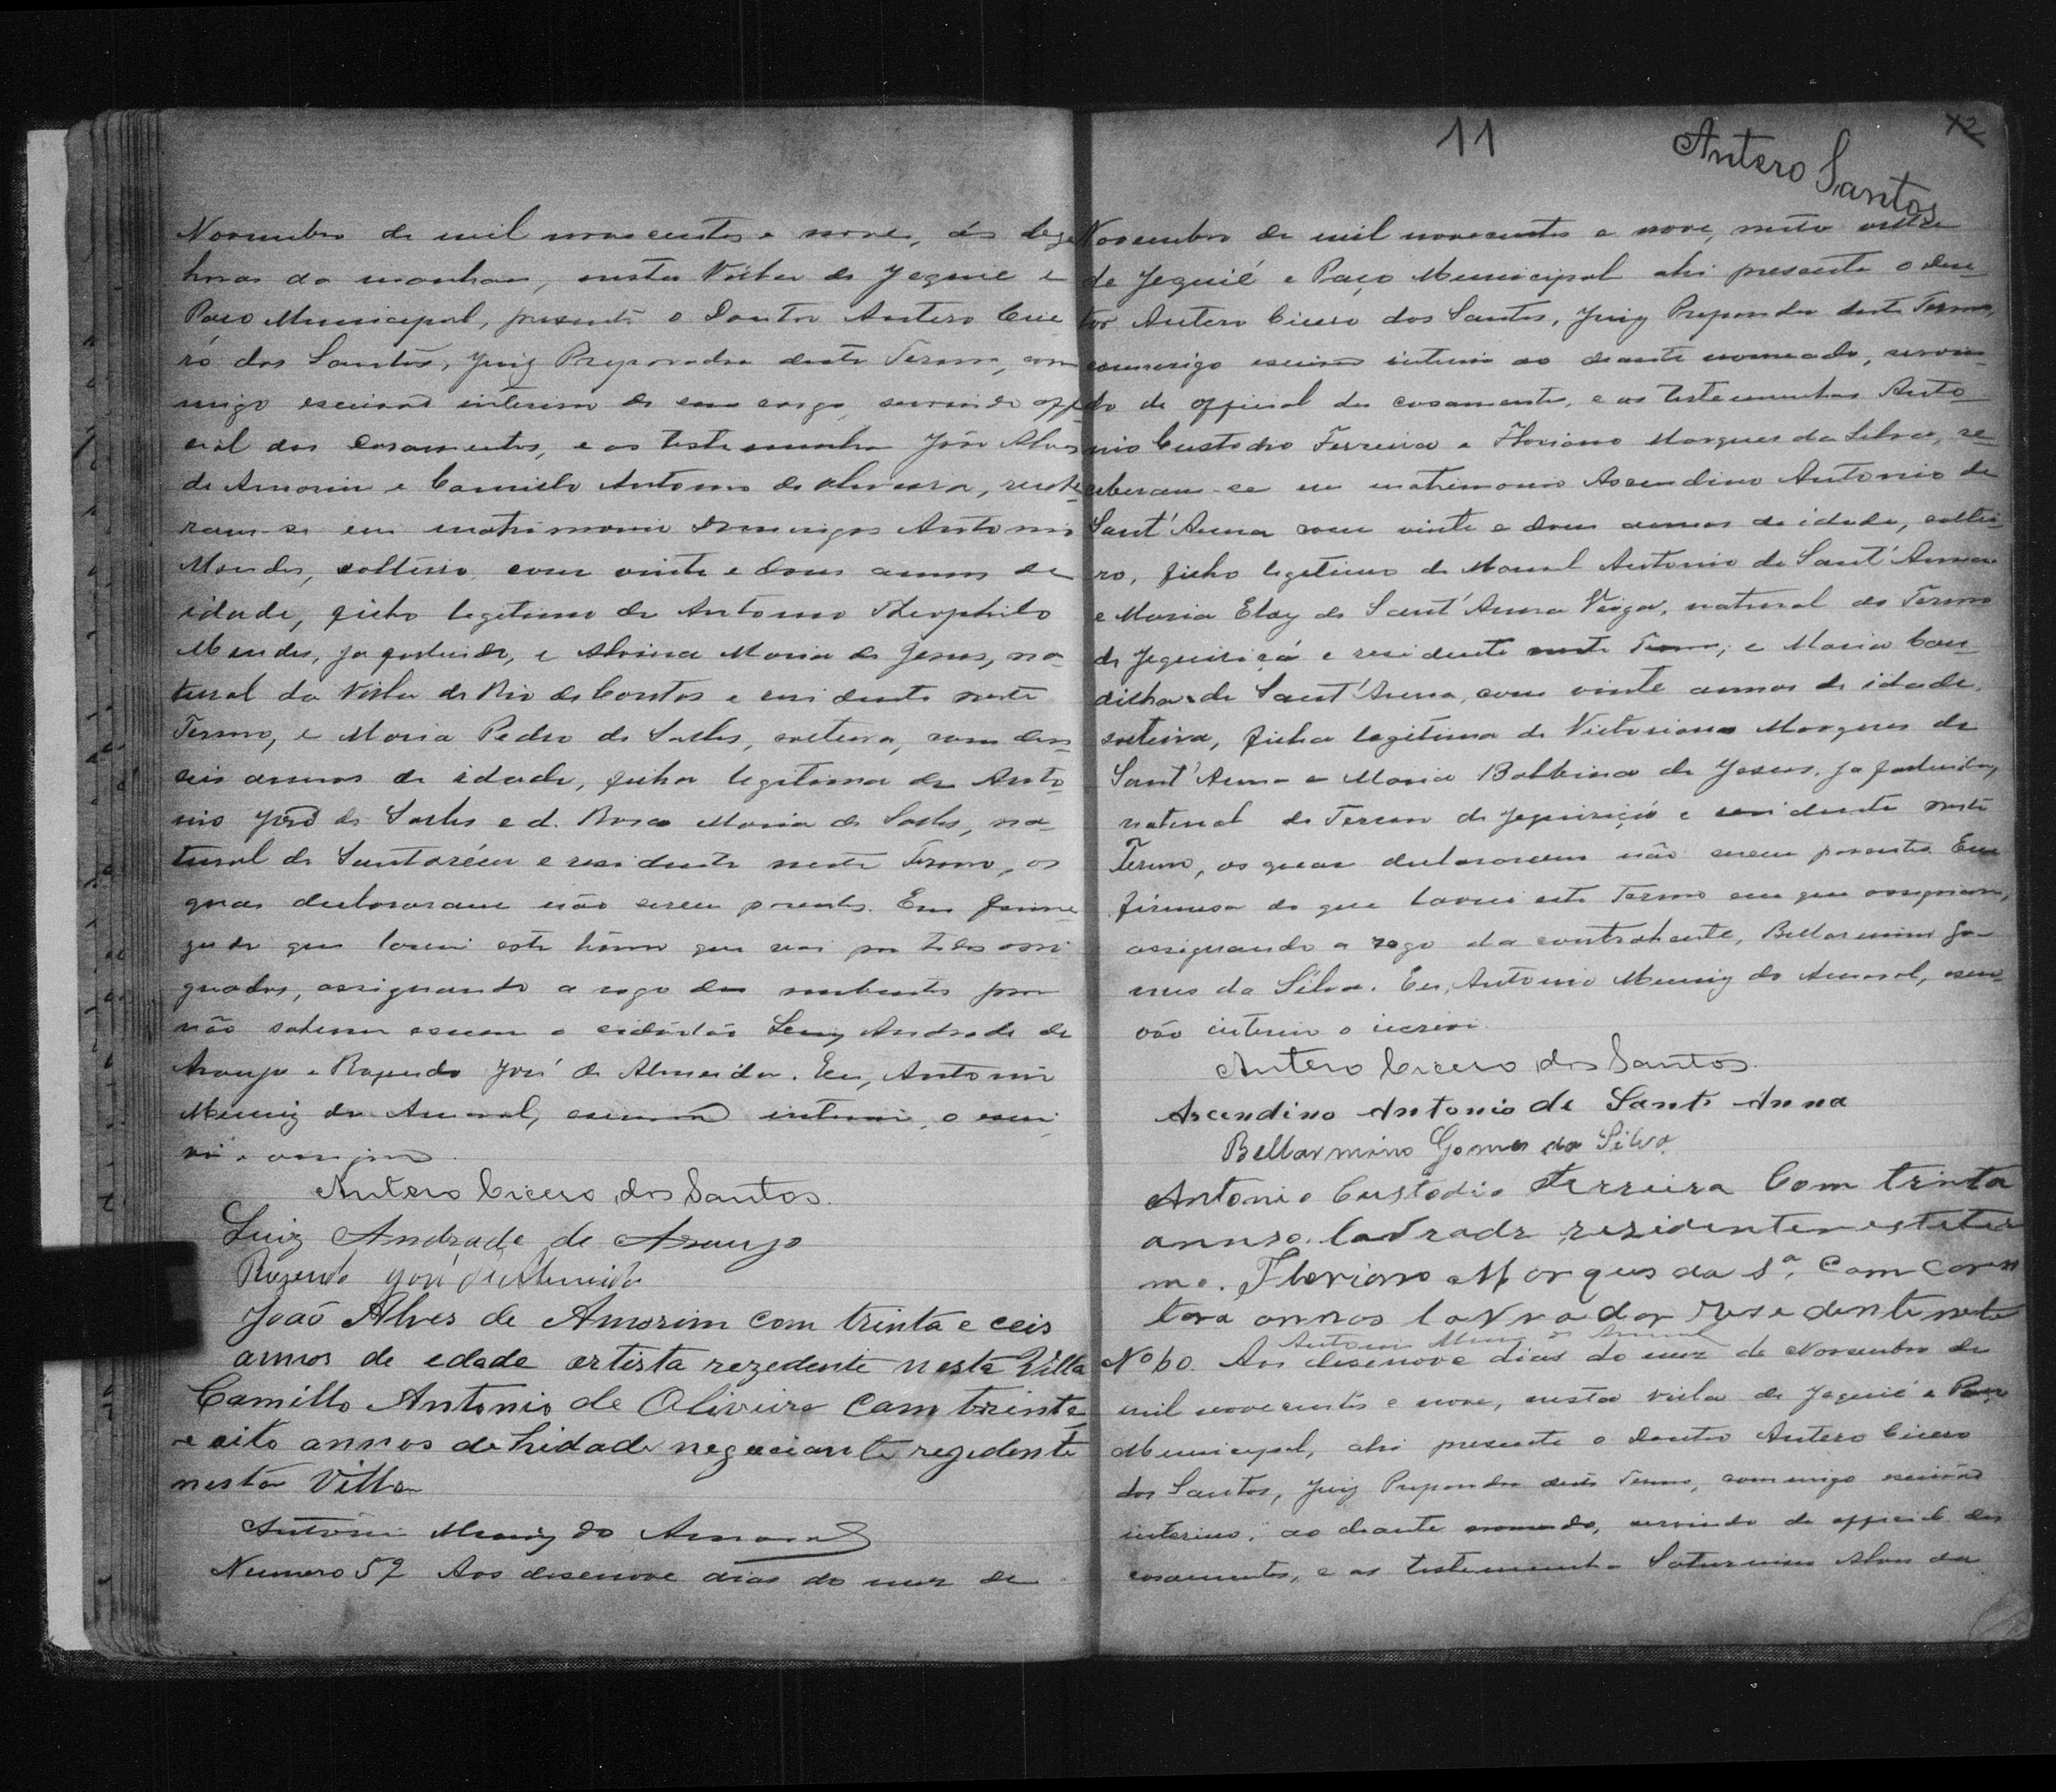 Novembro de mil novecentos e nove, ás deze
horas da manhan, nesta Villa de Jequié e
Paço Municipal, presente o Doutor Antero Cice
ro dos Santos, Juiz Preparador deste Termo, com
migo escrivão interino de seu cargo, servindo offi
cial dos casamentos, e as testemunhas João Alves
de Amorim e Camillo Antonio de Oliveira, recebe
ram-se em matrimonio Domingos Antonio
Mendes, solteiro, com vinte e dous annos de
idade, filho legitimo de Antonio Theophilo
Mendes, ja fallecido, e Alvina Maria de Jesus, na-
tural da Villa de Rio de Contas e residente neste
Termo, e Maria Pedro de Salles, solteira, com deze
seis annos de idade, filha legitima de Anto
nio José de Salles e d. Rosa Maria de Salles, na-
tural de Santarém e residente neste Termo, os
quaes declararam não serem parentes. Em firme
za do que lavrei este termo que vai por todos assi
gnados, assignando a rogo dos nubentes por
não saberem escrever o cidadão Luiz Andrade de
Araujo e Rozendo José de Almeida. Eu, Antonio
Muniz do Amaral, escrivão interino, o escre
vi e assigno.
Antero Cicero dos Santos.
Luiz Andrade de Araujo
Rozendo José de Almeida
João Alves de Amorim com trinta e ceis
annos de edade artista rezedente nesta Villa
Camillo Antonio de Oliveira Com trinta
e oito annos de hidade negociante rezedente
nesta Villa
Antonio Muniz do Amaral
Numero 59 Aos desenove dias do mez de
11 Antero Santos 12
Novembro de mil novecentos e nove, nesta villa
de Jequié e Paço Municipal ahi presente o dou-
tor Antero Cicero dos Santos, Juiz Preparador deste Termo,
commigo escrivão interino ao deante nomeado, servin-
do de official dos casamentos, e as testemunhas Anto-
nio Custodio Ferreira e Floriano Marques da Silva, re-
ceberam-se em matrimonio Ascendino Antonio de
Sant'Anna com vinte e dous annos de idade, soltei-
ro, filho legitimo de Manoel Antonio de Sant'Anna
e Maria Eloy de Sant'Anna Veiga, natural do Termo
de Jequiriçá e residente neste Termo; e Maria Can-
dilha de Sant'Anna, com vinte annos de idade,
solteira, filha legitima de Victoriano Marques de
Sant'Anna e Maria Balbina de Jesus, ja fallecida,
natural do Termo de Jequiriçá e residente neste
Termo, os quaes declararam não serem parentes. Em
firmesa do que lavrei este termo em que assignam,
assignando a rogo da contrahente, Bellarmino Go-
mes da Silva. Eu, Antonio Muniz do Amaral, escri-
vão interino o escrevi
Antero Cicero dos Santos.
Ascendino Antonio de Sant Anna
Bellarmino Gomes da Silva.
Antonio Custodio Ferreira Com trinta
annso. lavradr rezidenten esteter
mo. Floriano Marques da Sª. Com coren
tora annos lavrador resedente neste
Antonio Muniz do Amaral
Nº 60. Aos desenove dias do mez de Novembro de
mil novecentos e nove, nesta villa de Jequié e Paço
Municipal, ahi presente o Doutor Antero Cicero
dos Santos, Juiz Preparador deste Termo, commigo escrivão
interino, ao deante nomeado, servindo de official dos
casamentos, e as testemunhas Saturnino Alves da